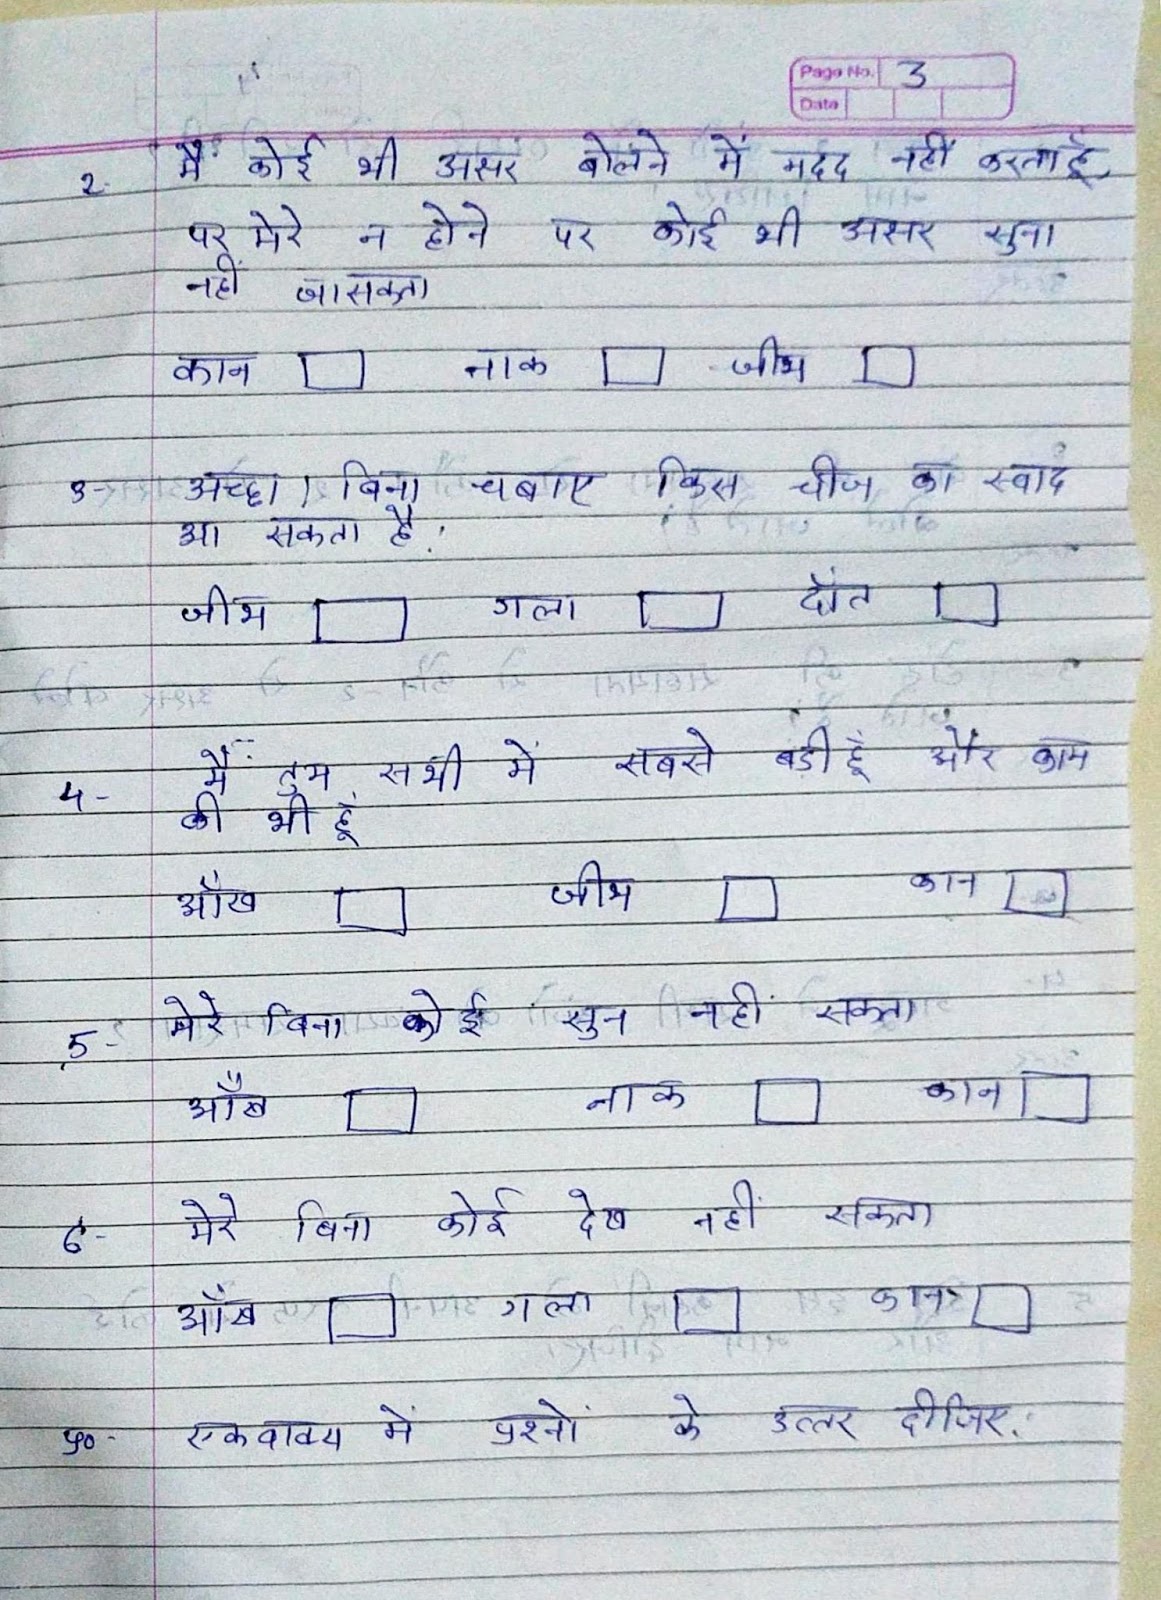 Page No. 3
Date
2. मैं कोई भी असर बोलने में मदद नहीं करता हूँ,
पर मेरे न होने पर कोई भी असर सुना
नहीं जासकता
कान नाक जीभ
3- अच्छा, बिना चबाए किस चीज का स्वाद
आ सकता है.
जीभ गला दाँत
4- मैं तुम सभी में सबसे बडी हूँ और काम
की भी हूँ
आँख जीभ कान
5- मेरे बिना कोई सुन नहीं सकता
आँख नाक कान
६- मेरे बिना कोई देख नहीं सकता
आँख गला कान
प्र० एकवाक्य में प्रश्नों के उत्तर दीजिए.